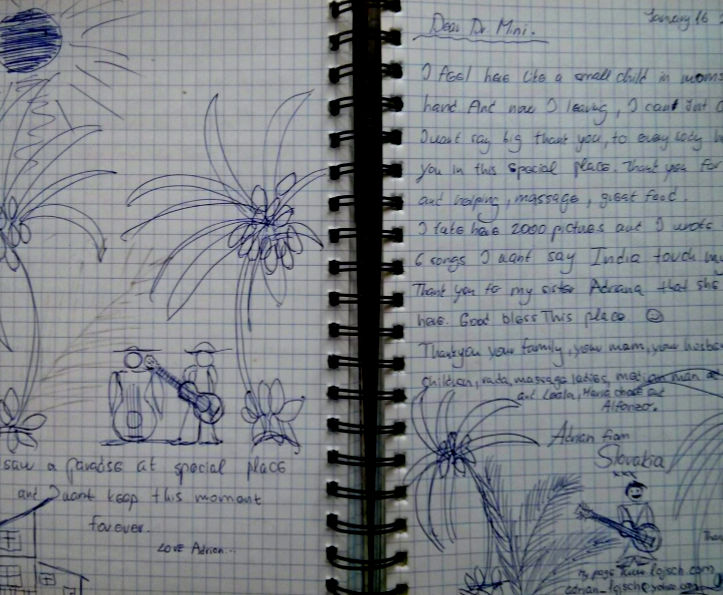 saw a paradise at special place
and I want keep this moment
forever.
Love Adrian...
January 16
Dear Dr. Mini.
I feel here like a small child in moms
hand. And now I leaving, I can't just
I want say big thank you, to everybody
you in this special place. Thank you for
and helping, massage, great food.
I take here 2000 pictures and I wrote
6 songs I want say India touch my
Thank you to my sister Adriana that she
here. Good bless This place ☺
Thankyou your family, your mam, your
children, massage ladies, man
and Leela,
Alfonzo.
Adrian from
Slovakia
Than
my page lojsch.com
adrian_lojsch@